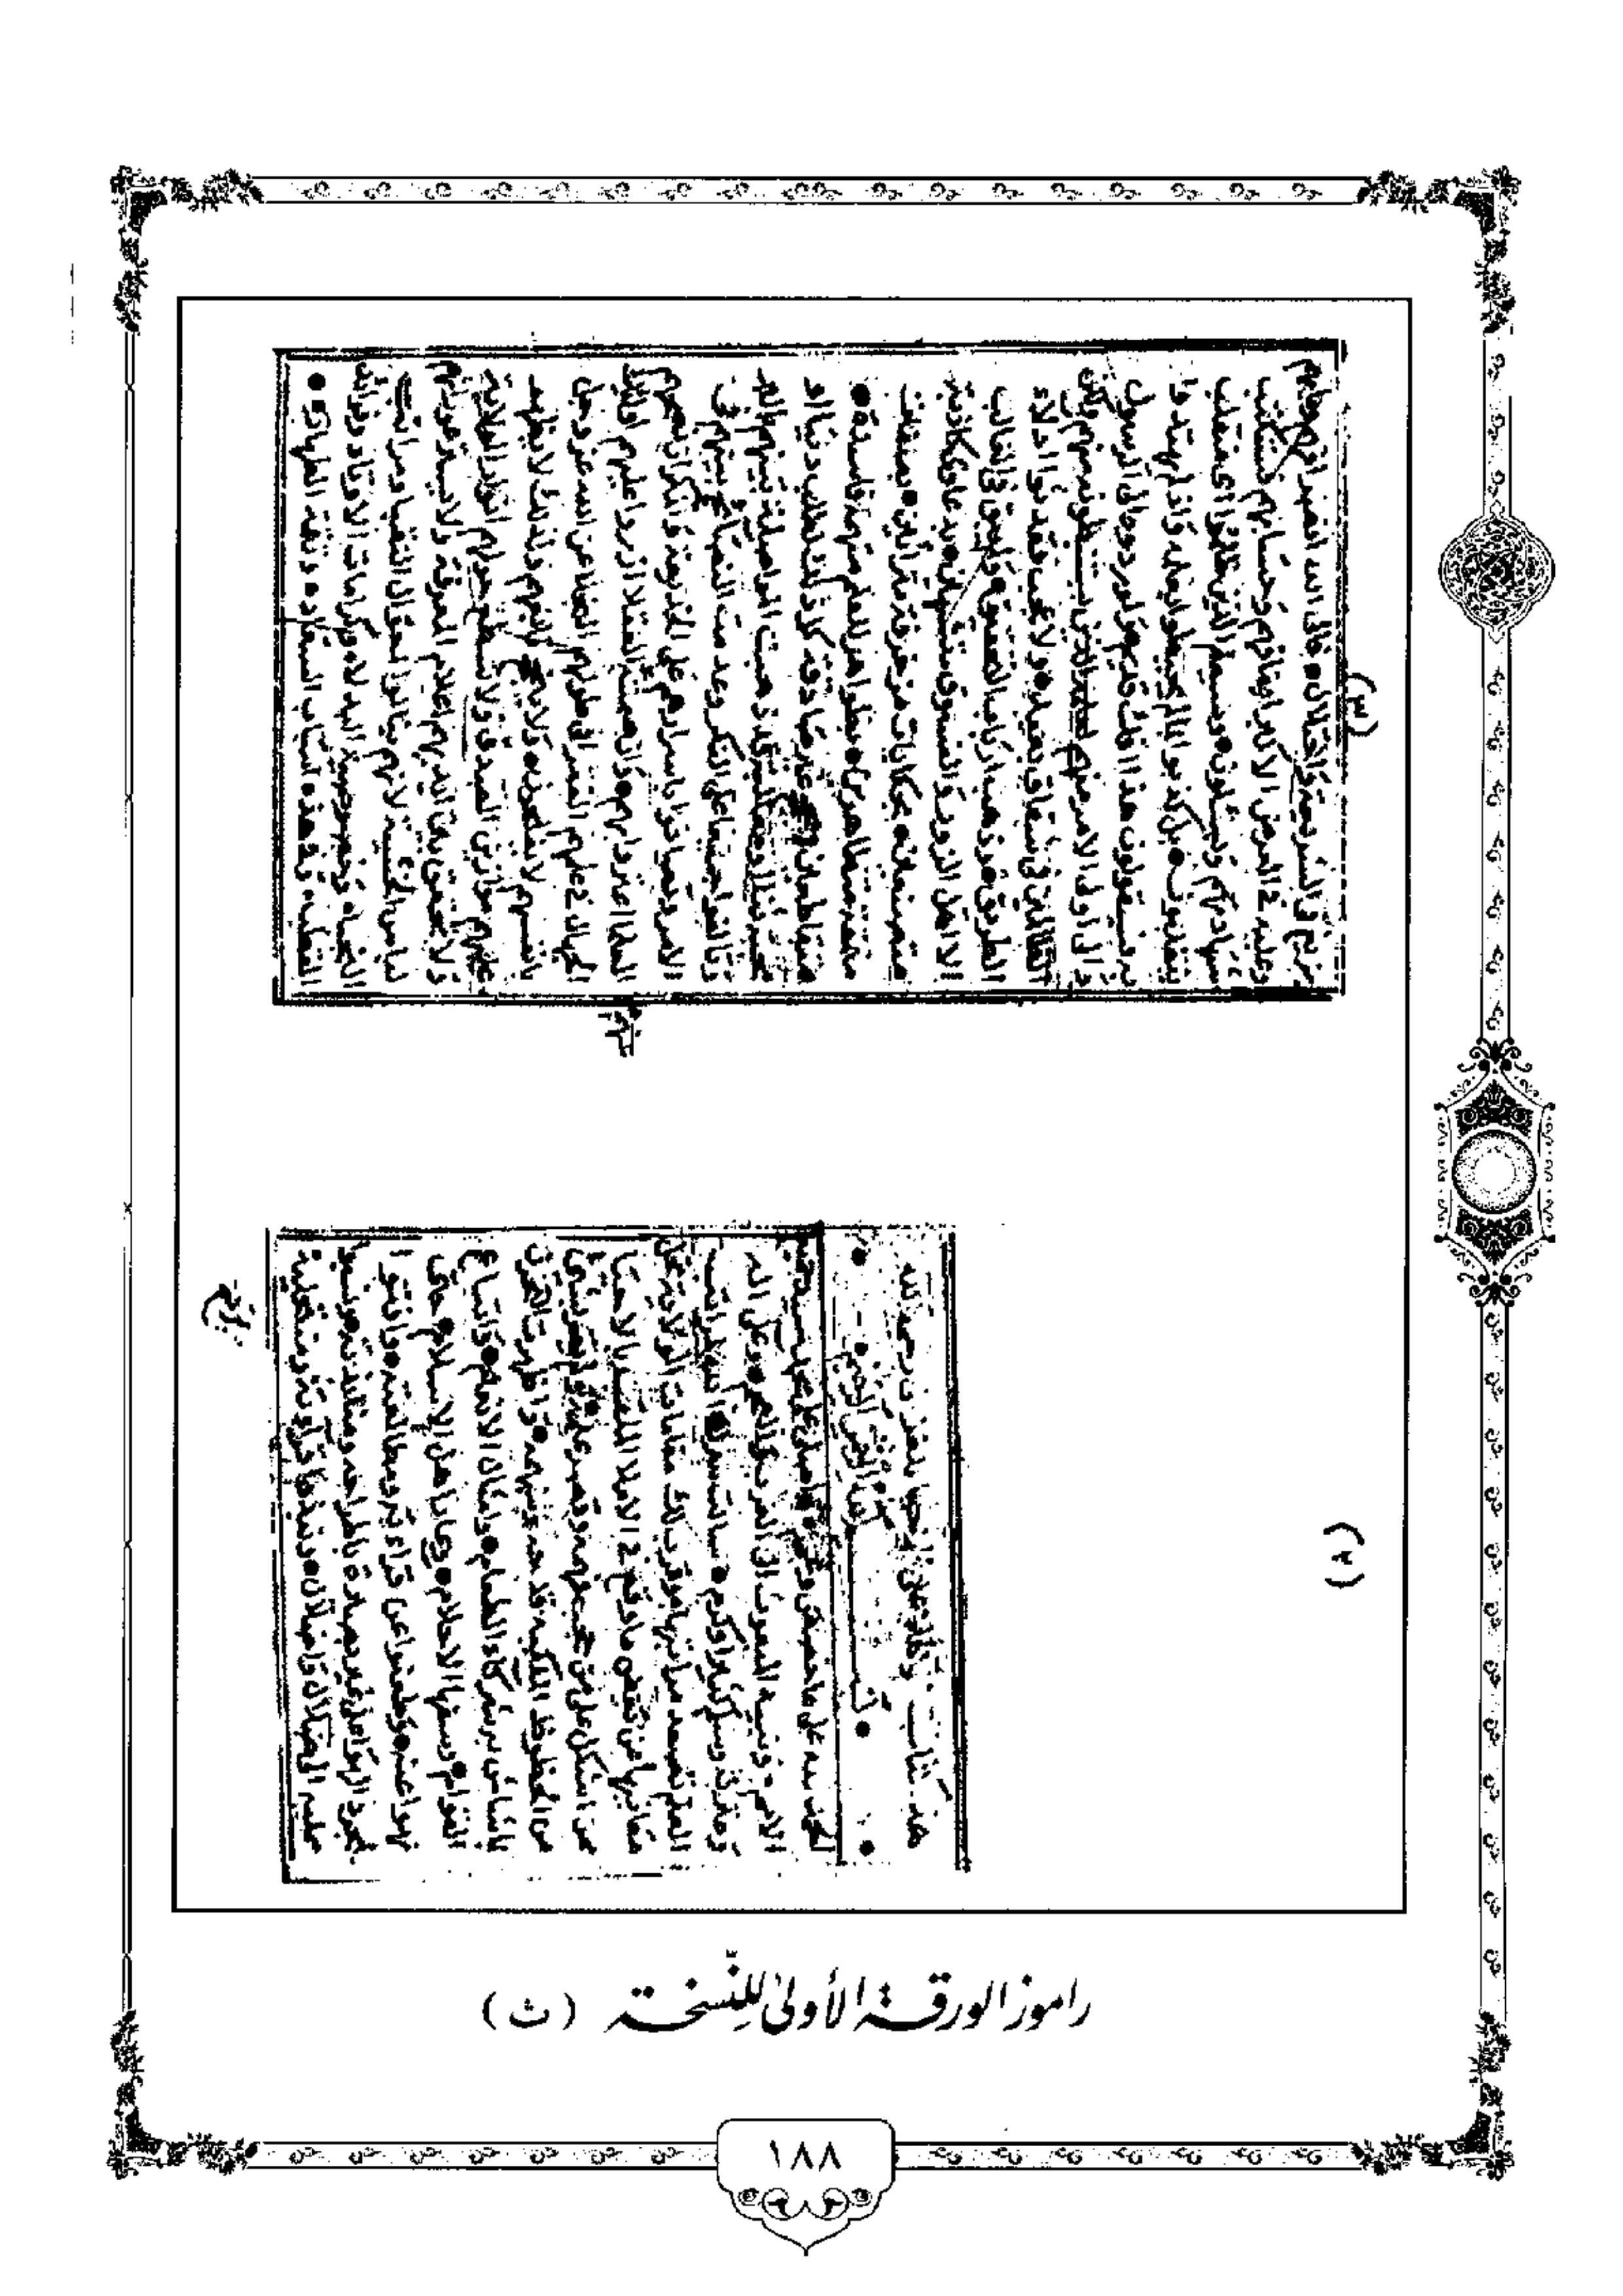 الحمد لله على ما خصص وعم وصلى الله على سيد جميع
الامم المبعوث الى العرب والعجم وعلى اله
وعترته وسلم كثيرا وكرم سالت يسرك الله لمراتب
العلم تصعد مراقيها وقرب لك مقامات الولاية تحل
معاليها عن بعض ما وقع في الاملاء الملقب بالاحيا
مما اشكل على من حجب فهمه وقصر علمه ولم يفز بشي
من الحظوظ الملكية قدحه وسهمه واظهرت التحزن
لما شاش به شركاء الطغام وامثال الانعام واتباع
العوام وسفها الاحلام وعار اهل الاسلام حتى
طعنوا عن قراءته ومطالعته وافتوا
بمجرد الهوى على غير بصيرة باطراحه ومنابذته ونسبوا
ممليه الى ضلال واضلال ونبذوا قراءه ومنتحليه
بزيغ
(٢)
(٣)
بزيغ في الشريعة واختلال فالى الله انصرافهم ومابهم
وعليه في العرض الاكبر ايقافهم وحسابهم فستكتب
شهادتهم ويسئلون وسيعلم الذين ظلموا اي منقلب
ينقلبون بل كذبوا بما لم يحيطوا بعلمه واذ لم يهتدوا
به فسيقولون هذا افك قديم ولو ردوه الى الرسول
والى اولى الامر منهم لعلمه الذين يستنبطونه منهم ولكن
الظالمون في شقاق بعيد ولا عجب فقد ثوى ادلاء
الطريق وذهب ارباب التحقيق ولم يبق في الغالب
الا اهل الزور والفسوق متشبثين بدعاوى كاذبة
متصفين بحكايات موضوعة متزينين بصفات
منمقة متظاهرين بظواهر من العلم فاسدة
متعاطين غير صادقة كل ذلك لطلب دنيا او
محبة ثناء او مغالبة نظراء قد ذهبت المواصلة بينهم بالبر
وتالفوا جميعا على المنكر وعدمت النصائح بينهم في
الامر وتصافوا باسرهم على الخديعة والمكر ان نصحتهم
العلما اغروا بهم وان صمت عنهم العقلا ازروا عليهم اولئك
الجهال في علمهم الفقرا في طولهم البخلا عن الله عز وجل
بانفسهم لا يفلحون ولا ينجح تابعهم ولذلك لا تظهر
عليهم مواريث الصدق ولا تسطع حولهم انوار الولاية
ولا تحقق لديهم اعلام المعرفة ولا يستر عوراتهم
لباس الخشية لانهم لم ينالوا احوال النقباء ومراتب
النجباء وخصوصية البدلاء وكرامات الاوتاد وفوائد
القطب وفي هذه اسباب السعادة وتتمة الطهارة
راموز الورقة الأولى للنّسخة (ث)
١٨٨